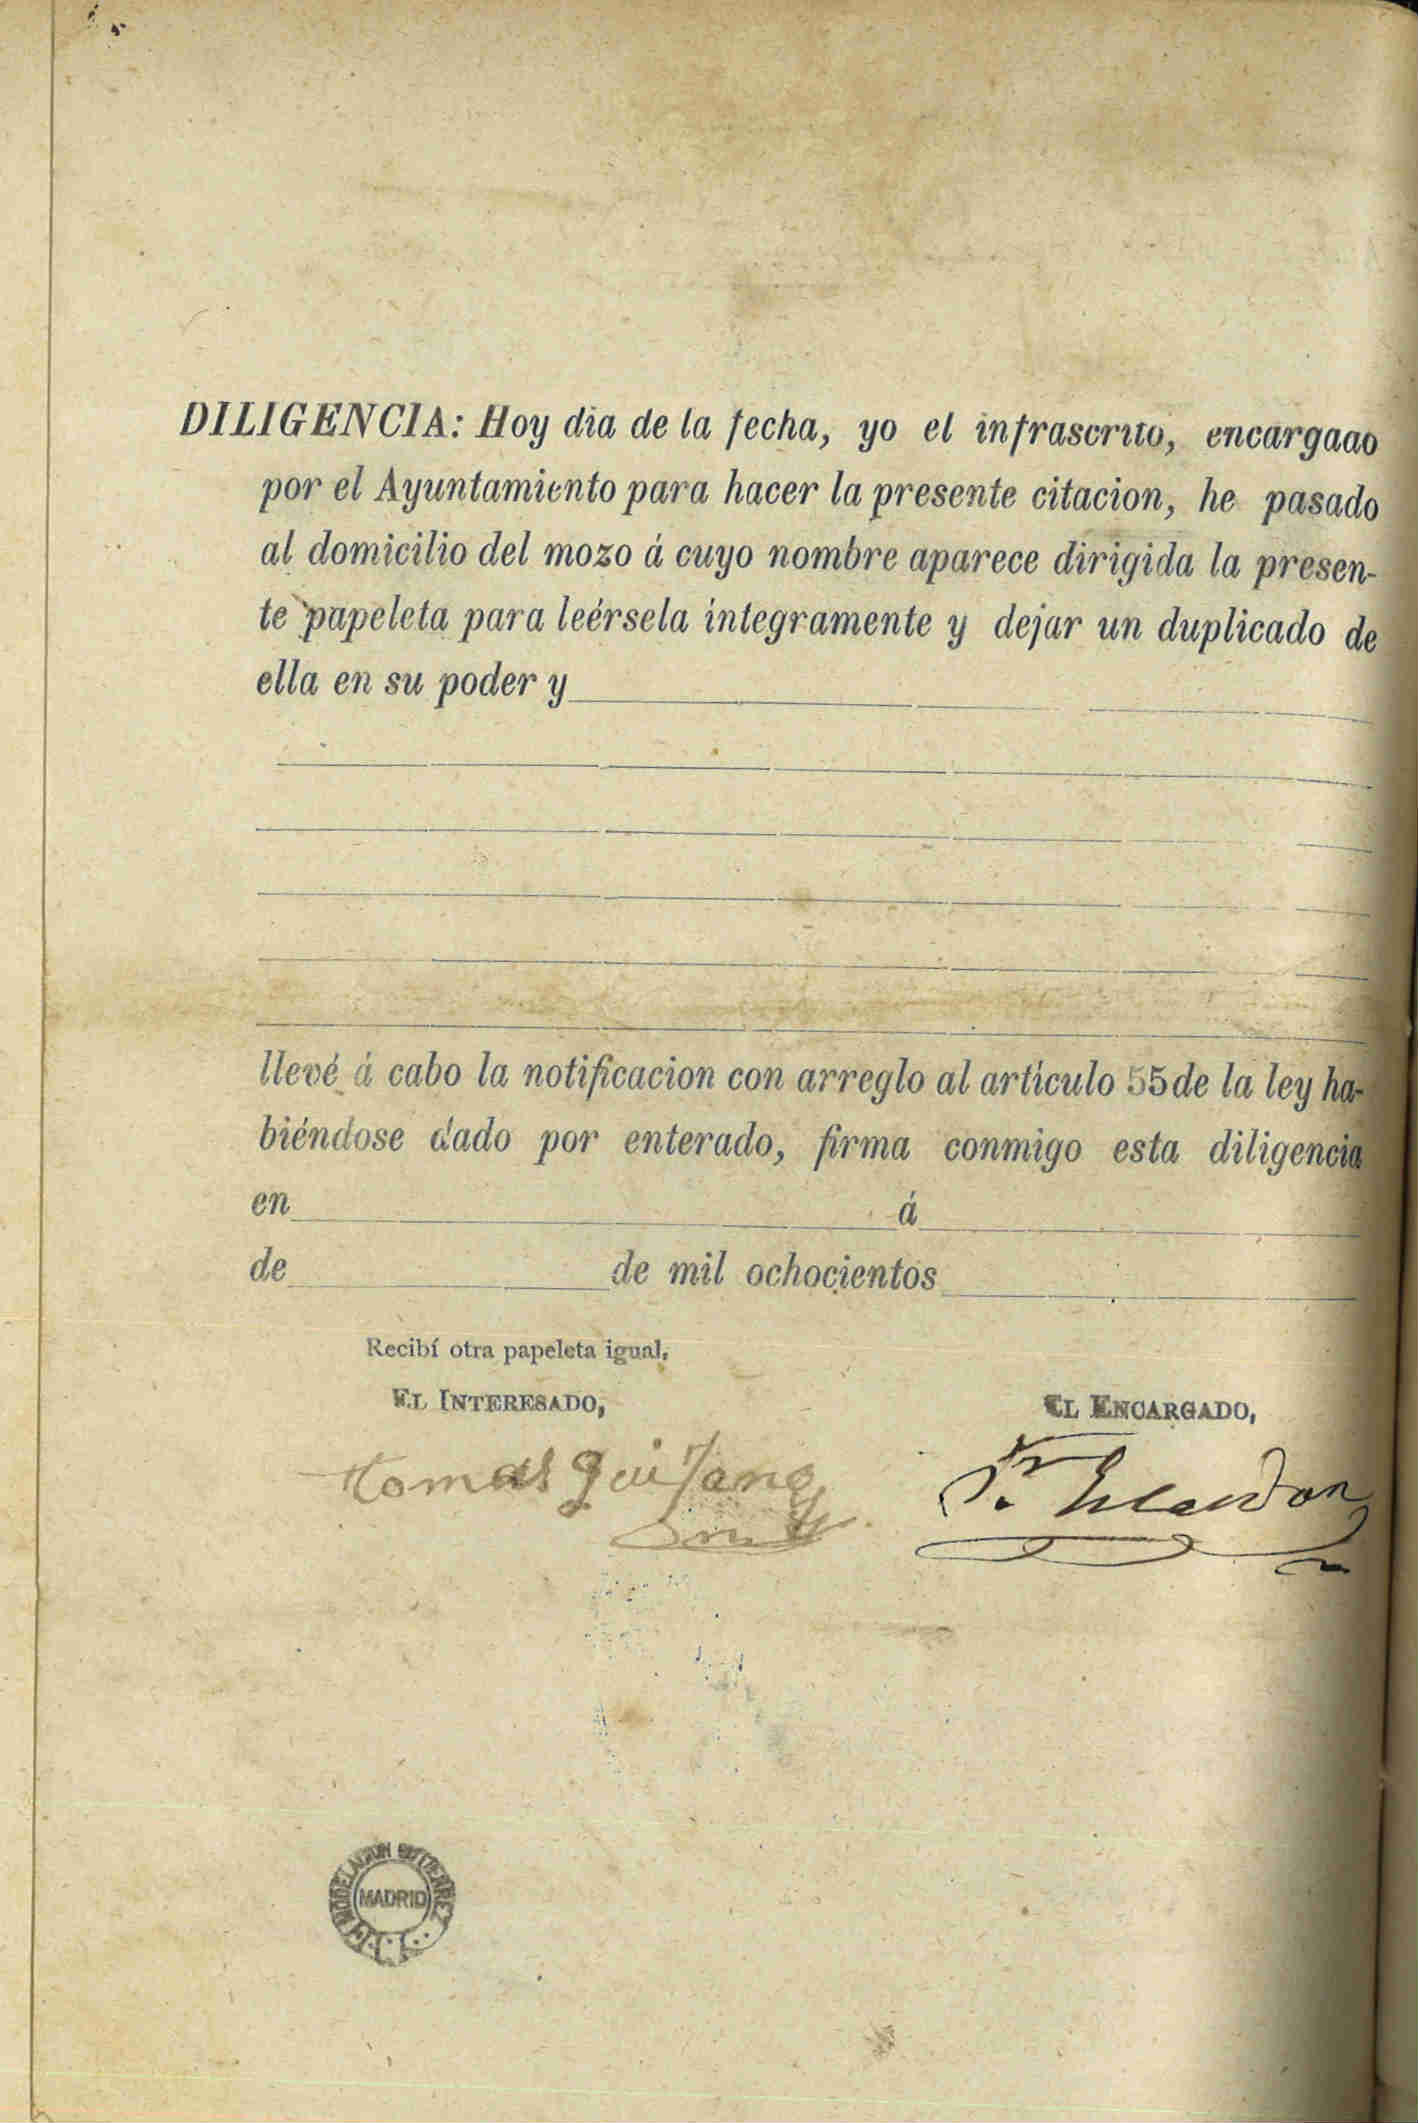 DILIGENCIA: Hoy dia de la fecha, yo el infrascrito, encargado
por el Ayuntamiento para hacer la presente citacion, he pasado
al domicilio del mozo á cuyo nombre aparece dirigida la presen-
te papeleta para leérsela integramente y dejar un duplicado de
ella en su poder y
llevé á cabo la notificacion con arreglo al artículo 55 de la ley ha-
biéndose dado por enterado, firma conmigo esta diligencia
en á
de de mil ochocientos
Recibí otra papeleta igual,
EL INTERESADO, EL ENCARGADO,
Tomas Quijano
MODELACION GUTIERREZ
MADRID